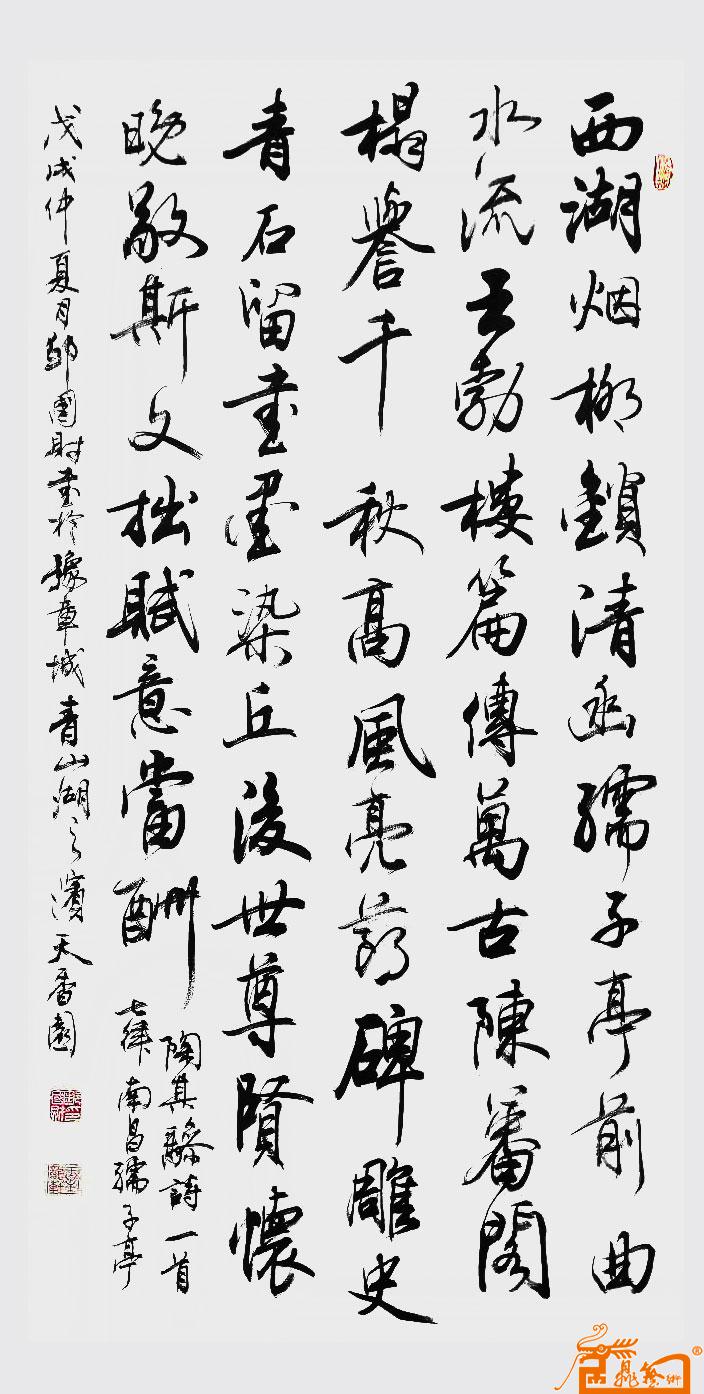 西湖烟柳鎖清幽孺子亭前曲
水流王勃楼篇傳萬古陳蕃閣
榻譽千秋高風亮節碑雕史
青石留書墨染丘後世尊賢懷
晚敬斯文拙賦意當酬
陶其驂詩一首
七律南昌孺子亭
戊戌仲夏月鄒國財書於豫章城青山湖之濱天香園